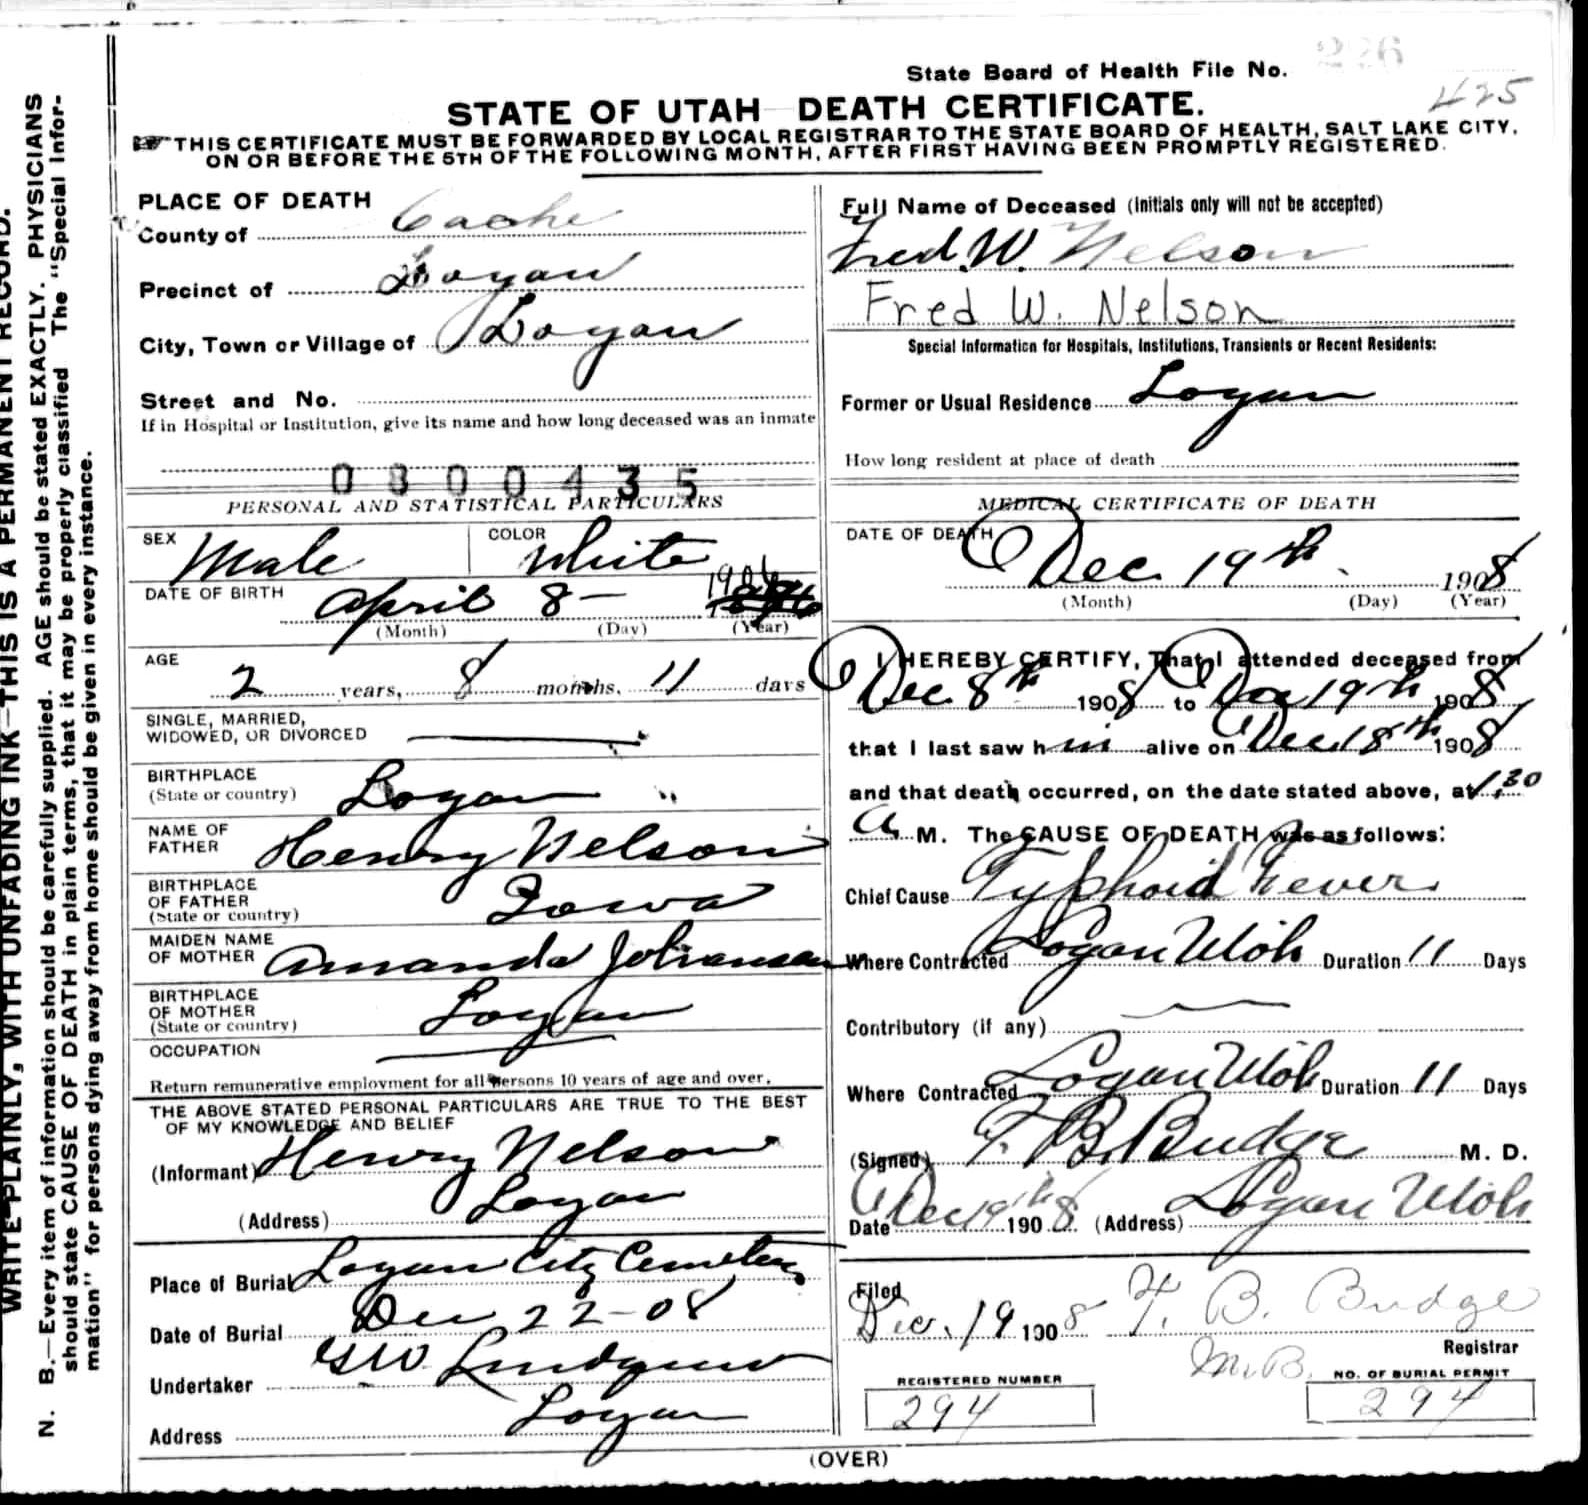 State Board of Health File No. 226
425
STATE OF UTAH DEATH CERTIFICATE.
THIS CERTIFICATE MUST BE FORWARDED BY LOCAL REGISTRAR TO THE STATE BOARD OF HEALTH, SALT LAKE CITY,
ON OR BEFORE THE 5TH OF THE FOLLOWING MONTH, AFTER FIRST HAVING BEEN PROMPTLY REGISTERED.
WRITE PLAINLY, WITH UNFADING INK—THIS IS A PERMANENT RECORD.
N. B.—Every item of information should be carefully supplied. AGE should be stated EXACTLY. PHYSICIANS
should state CAUSE OF DEATH in plain terms, that it may be properly classified The "Special Infor-
mation" for persons dying away from home should be given in every instance.
PLACE OF DEATH
County of Cache
Precinct of Logan
City, Town or Village of Logan
Street and No.
If in Hospital or Institution, give its name and how long deceased was an inmate
0800435
PERSONAL AND STATISTICAL PARTICULARS
SEX Male COLOR White
DATE OF BIRTH April 8 — 1906
(Month) (Day) (Year)
AGE
2 years, 8 months, 11 days
SINGLE, MARRIED,
WIDOWED, OR DIVORCED
BIRTHPLACE
(State or country) Logan "
NAME OF
FATHER Henry Nelson
BIRTHPLACE
OF FATHER
(State or country) Iowa
MAIDEN NAME
OF MOTHER Amanda Johansen
BIRTHPLACE
OF MOTHER
(State or country) Logan
OCCUPATION
Return remunerative employment for all persons 10 years of age and over.
THE ABOVE STATED PERSONAL PARTICULARS ARE TRUE TO THE BEST
OF MY KNOWLEDGE AND BELIEF
(Informant) Henry Nelson
(Address) Logan
Place of Burial Logan City Cemetery
Date of Burial Dec 22-08
Undertaker G W. Lindquist
Address Logan
Full Name of Deceased (Initials only will not be accepted)
Fred. W. Nelson
Fred W. Nelson
Special Information for Hospitals, Institutions, Transients or Recent Residents:
Former or Usual Residence Logan
How long resident at place of death
MEDICAL CERTIFICATE OF DEATH
DATE OF DEATH
Dec 19th. 1908
(Month) (Day) (Year)
I HEREBY CERTIFY, That I attended deceased from
Dec 8th 1908 to Dec 19th 1908
that I last saw him alive on Dec 18th 1908
and that death occurred, on the date stated above, at 1.30
A. M. The CAUSE OF DEATH was as follows:
Chief Cause Typhoid Fever
Where Contracted Logan Utah Duration 11 Days
Contributory (if any)
Where Contracted Logan Utah Duration 11 Days
(Signed) F. B. Budge M. D.
Date Dec 19th 1908 (Address) Logan Utah
Filed
Dec. 19 1908 F. B. Budge
Registrar
M.B.
REGISTERED NUMBER
294
NO. OF BURIAL PERMIT
294
(OVER)